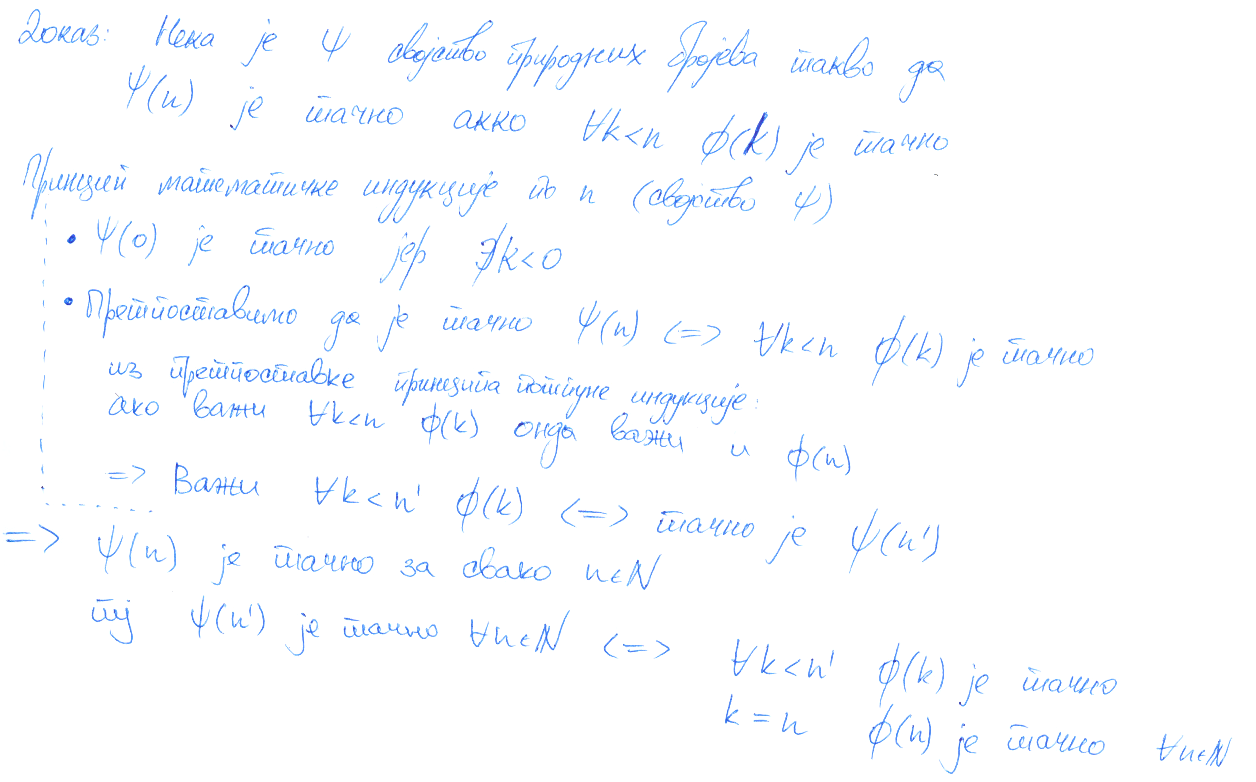 Доказ: Нека је ψ својство природних бројева такво да
ψ(n) је тачно акко ∀k<n ϕ(k) је тачно
Принцип математичке индукције по n (својство ψ)
• ψ(0) је тачно јер ∄k<0
• Претпоставимо да је тачно ψ(n) <=> ∀k<n ϕ(k) је тачно
из претпоставке принципа потпуне индукције:
ако важи ∀k<n ϕ(k) онда важи и ϕ(n)
=> Важи ∀k<n' ϕ(k) <=> тачно је ψ(n')
=> ψ(n) је тачно за свако n∈N
тј ψ(n') је тачно ∀n∈N <=> ∀k<n' ϕ(k) је тачно
k=n ϕ(n) је тачно ∀n∈N